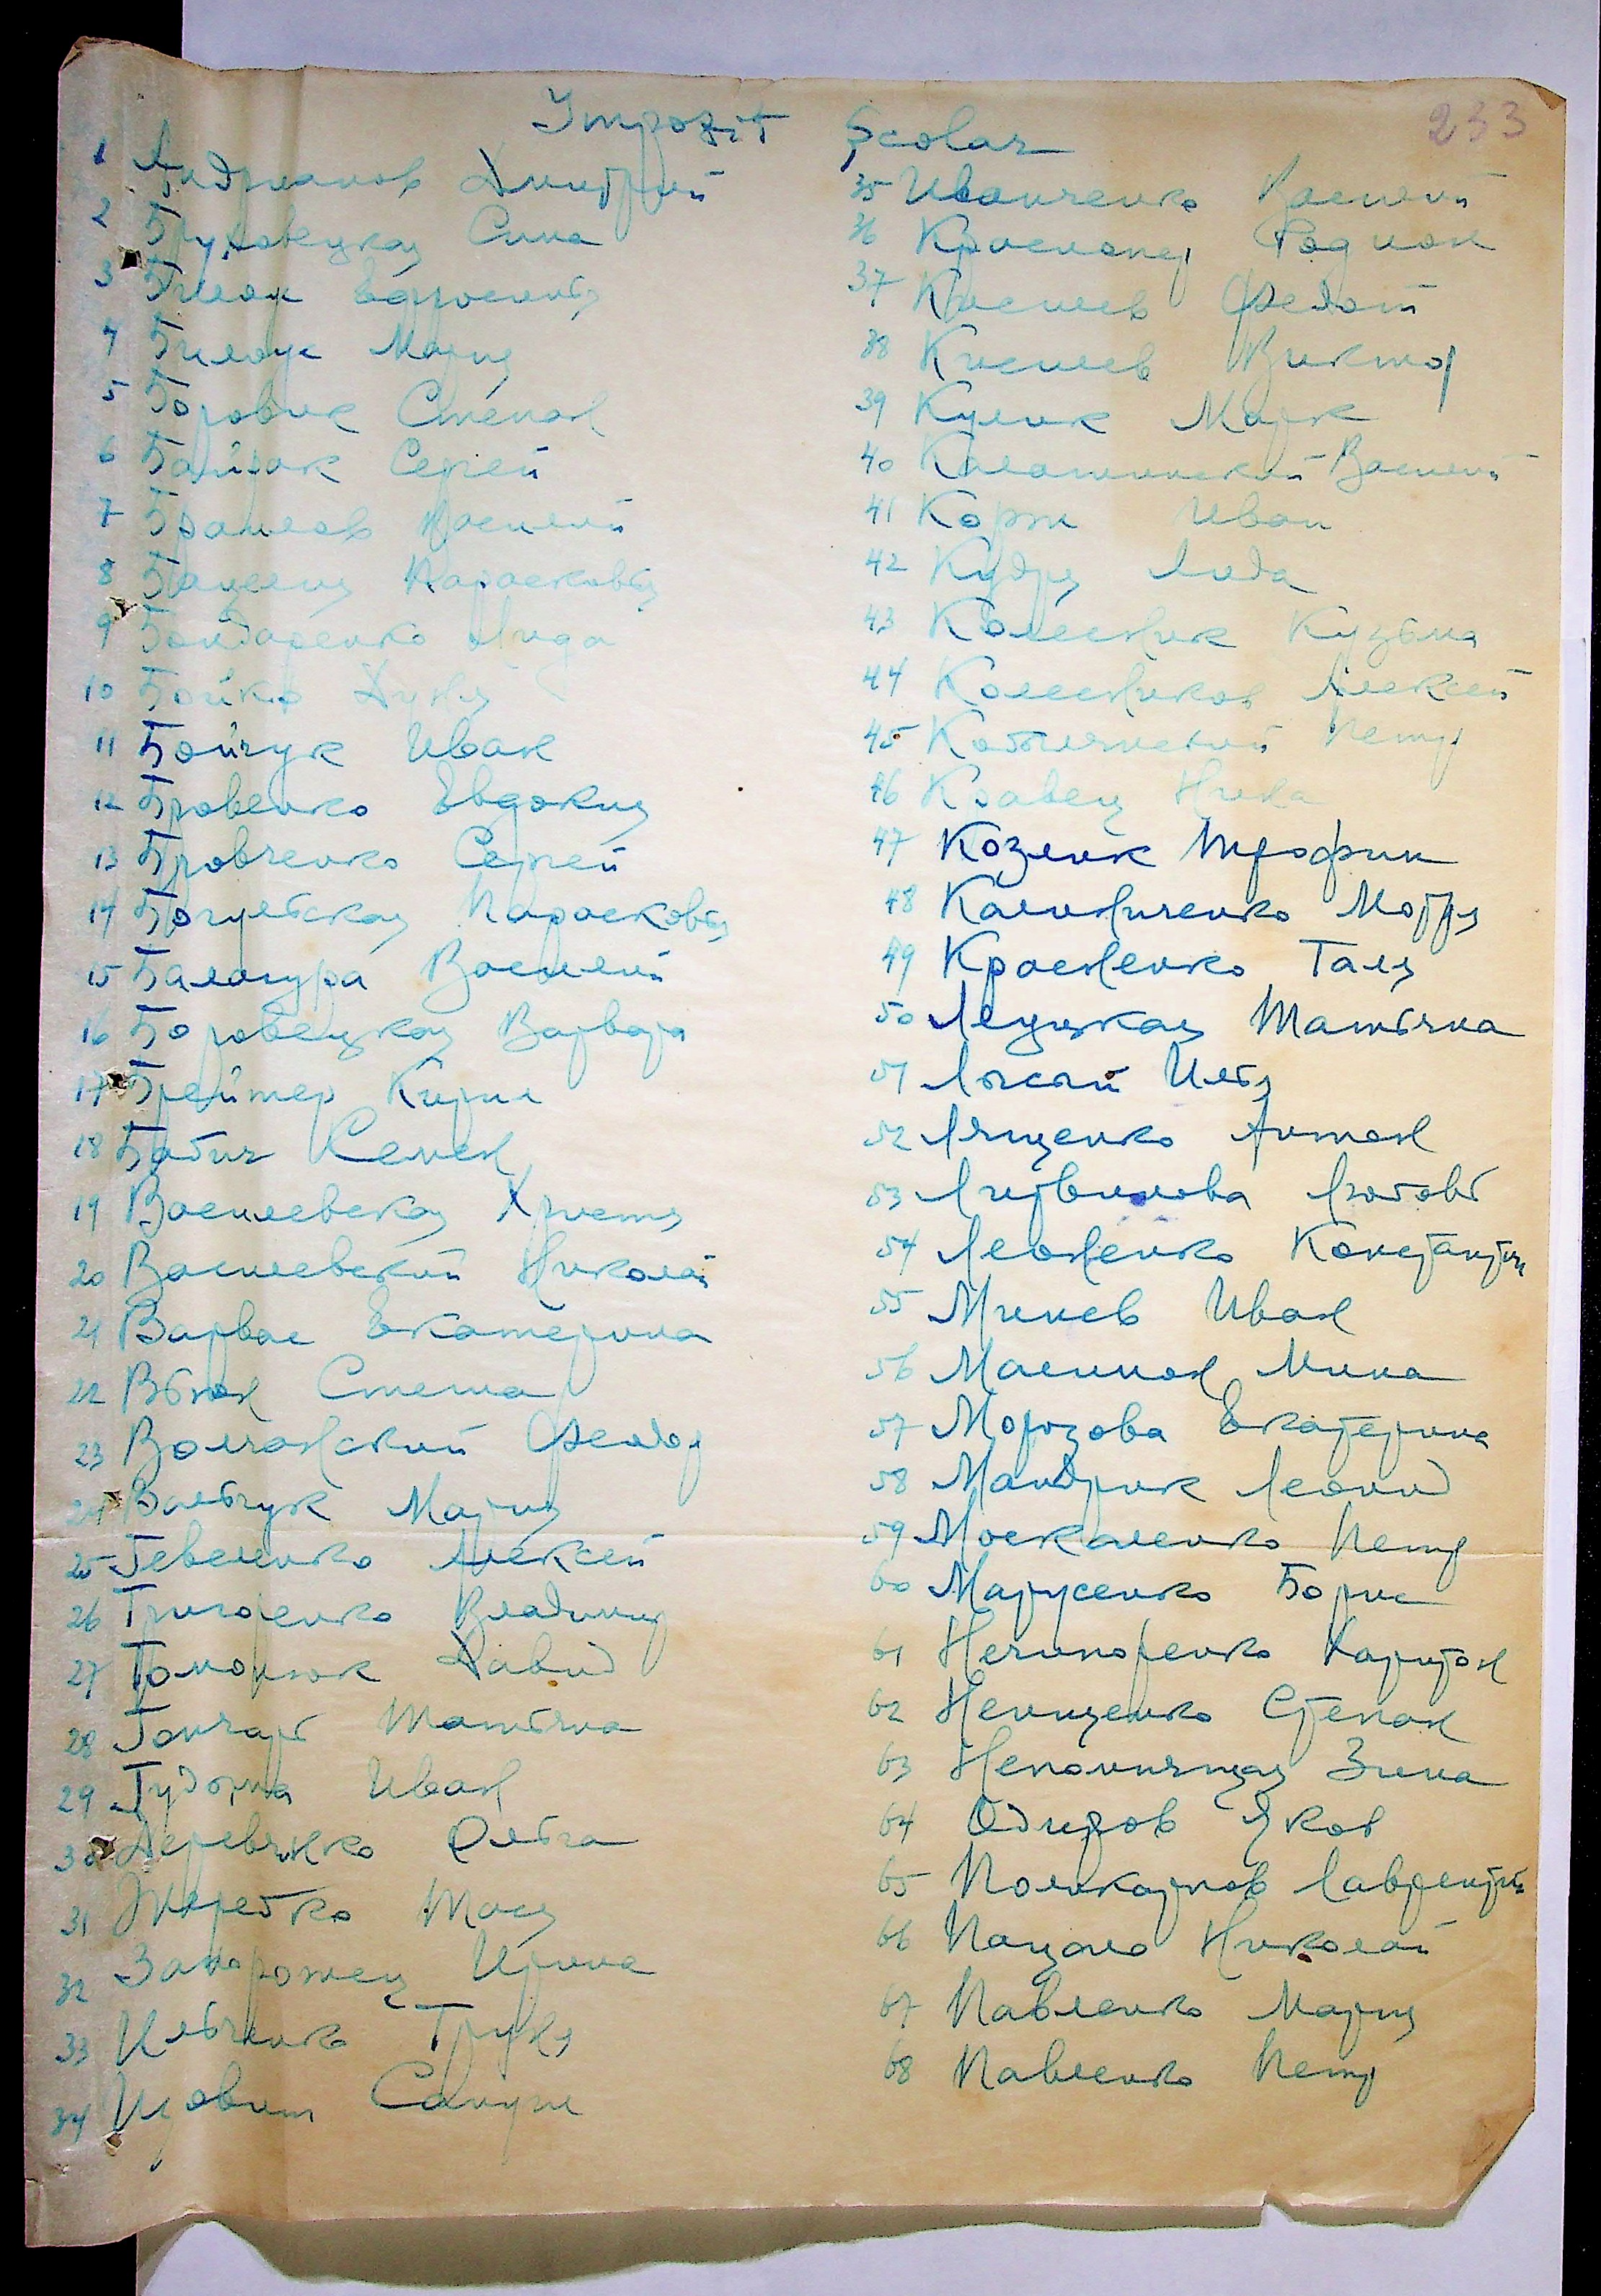 Impozit Școlar
233
1 Андрианов Дмитрий
2 Бруховецкая Сима
3 Билак Ефросинья
4 Билаук Мария
5 Боровик Степан
6 Байрак Сергей
7 Брашлав Василий
8 Парасковья
9 Бондаренко Лида
10 Бойко Дуня
11 Бойчук Иван
12 Бровенко Евдокия
13 Бровченко Сергей
14 Богульская Парасковья
15 Балагура Василий
16 Боровецкая Варвара
17 Брейтер Кирил
18 Бабич Семен
19 Василевская Христя
20 Василевский Николай
21 Варвас Екатерина
22 Вьюн Стеша
23 Волчанский Феодор
24 Вальчук Мария
25 Гевеленко Алексей
26 Григоренко Владимир
27 Гоманюк Давид
28 Гончарь Татьяна
29 Иван
30 Деревянко Ольга
31 Жеребко Тася
32 Запорожец Ирина
33 Ильченко Груня
34
35 Иванченко Василий
36 Краснопер Родион
37 Киселев Федот
38 Киселев Виктор
39 Кулик Марк
40 Калашинский Василий
41 Корж Иван
42 Кудря Люда
43 Колесник Кузьма
44 Колесников Алексей
45 Кобылянский Петр
46 Кравец Нина
47 Козлик Трофим
48 Калиниченко Мотря
49 Красненко Галя
50 Луцкая Татьяна
51 Лысый Илья
52 Лященко Антон
53 Литвинова Любовь
54 Леоненко Константин
55 Минев Иван
56 Малиман Мина
57 Морозова Екатерина
58 Мандрик Леонид
59 Москаленко Петр
60 Марусенко Борис
61 Нечипоренко Харитон
62 Нелищенко Степан
63 Непомнящая Зина
64 Одиров Яков
65 Поликарпов Лаврентий
66 Пацало Николай
67 Павленко Мария
68 Павленко Петр